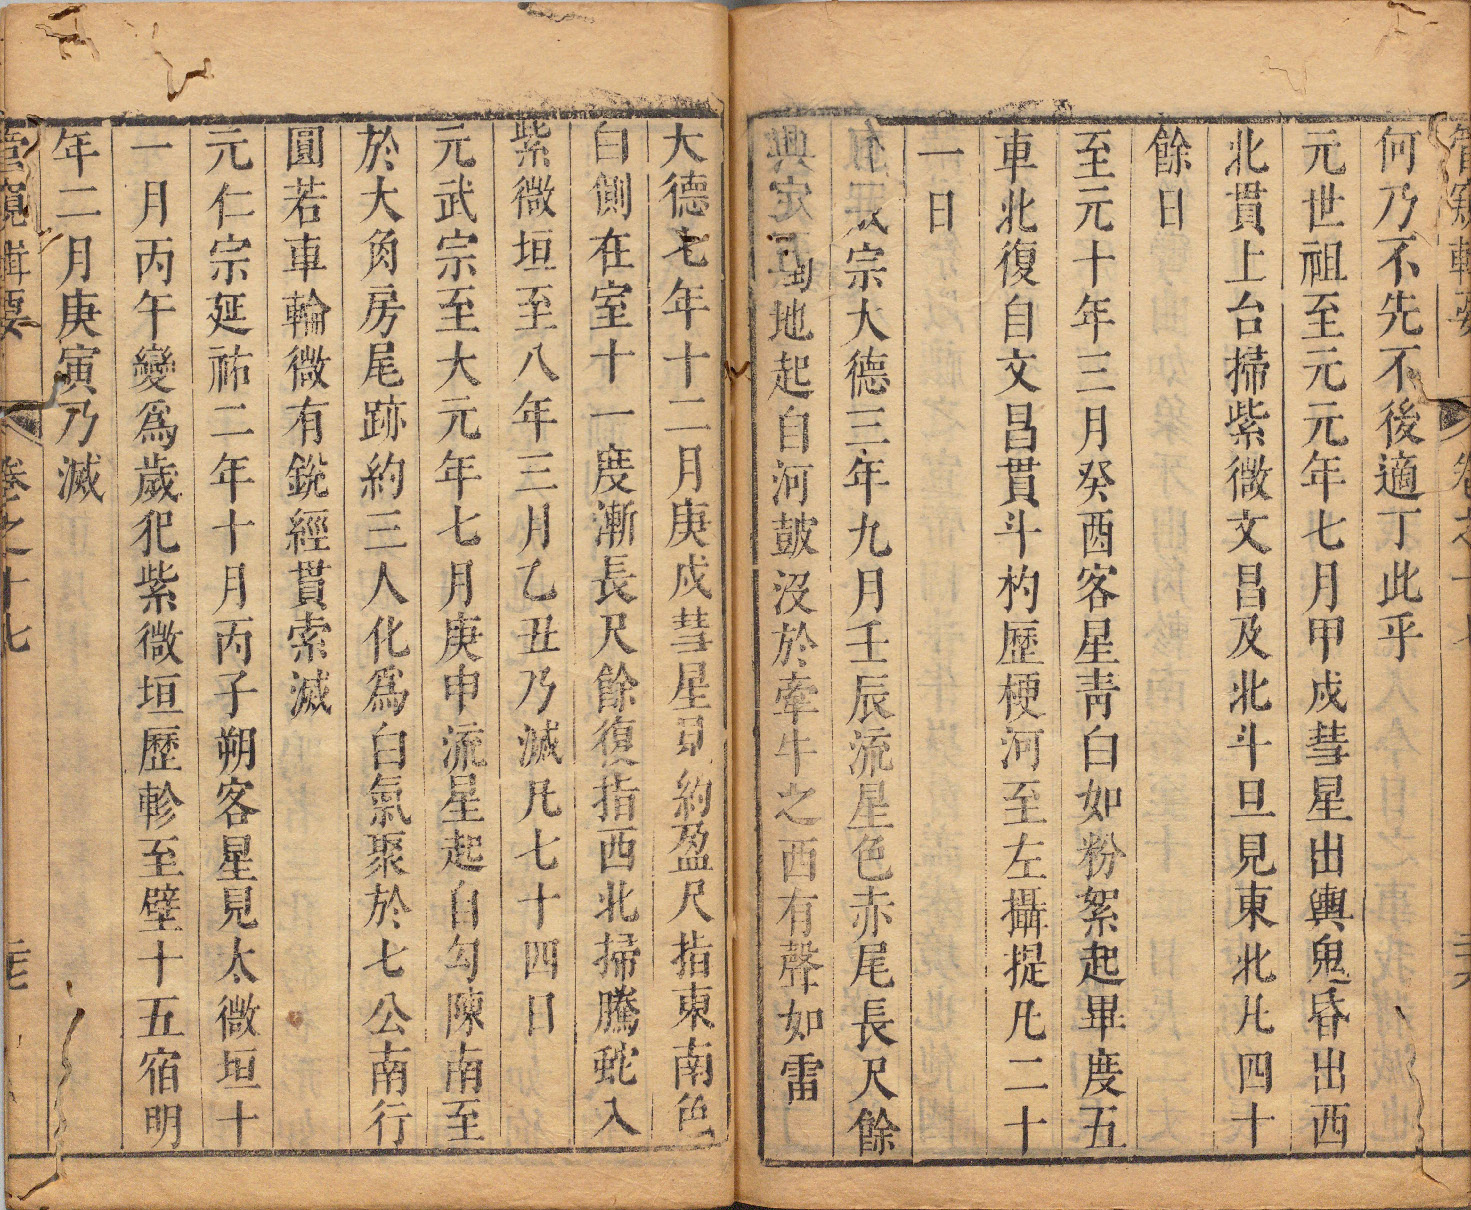 管窺輯要
卷之十七
何乃不先不後適丁此乎
元世祖至元元年七月甲戌彗星出輿鬼昏出西
北貫上台掃紫微文昌及北斗旦見東北凡四十
餘日
至元十年三月癸酉客星青白如粉絮起畢度五
車北復自文昌貫斗杓歷梗河至左攝提凡二十
一日
宗大德三年九月壬辰流星色赤尾長尺餘
地起自河鼓沒於牽牛之西有聲如雷
大德七年十二月庚戌彗星見約盈尺指東南色
白側在室十一度漸長尺餘復指西北掃騰蛇入
紫微垣至八年三月乙丑乃滅凡七十四日
元武宗至大元年七月庚申流星起自勾陳南至
於大角房尾跡約三人化為白氣聚於七公南行
圓若車輪微有銳經貫索滅
元仁宗延祐二年十月丙子朔客星見太微垣十
一月丙午變爲歲犯紫微垣歷軫至壁十五宿明
年二月庚寅乃滅
管窺輯要
卷之十七